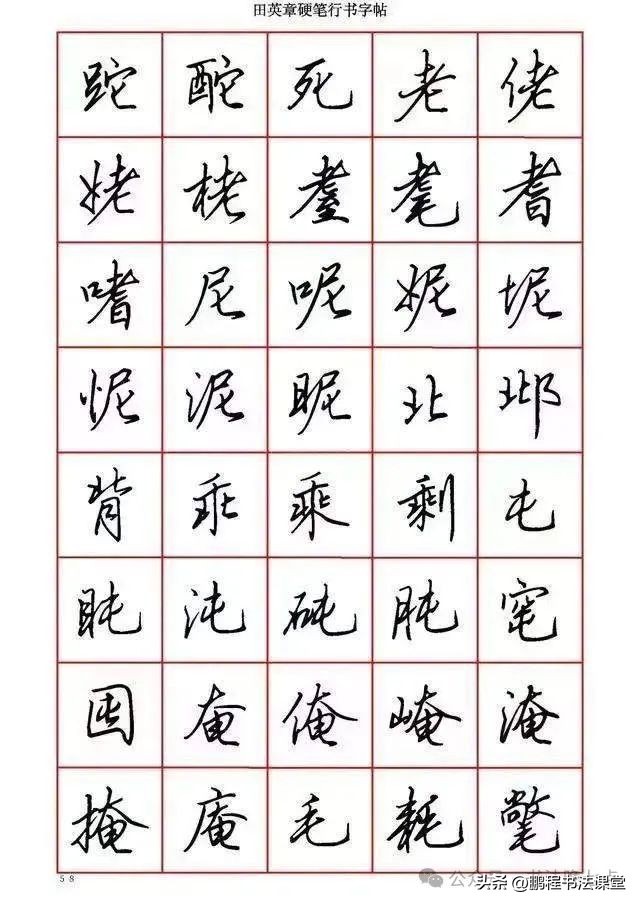 田英章硬笔行书字帖
跎 酡 死 老 佬
姥 栳 耋 耄 耆
嗜 尼 呢 妮 坭
怩 泥 昵 北 邶
背 乖 乘 剩 屯
盹 沌 砘 肫 窀
囤 奄 俺 崦 淹
掩 庵 毛 耗 氅
58
公众号
头条 @鹏程书法课堂